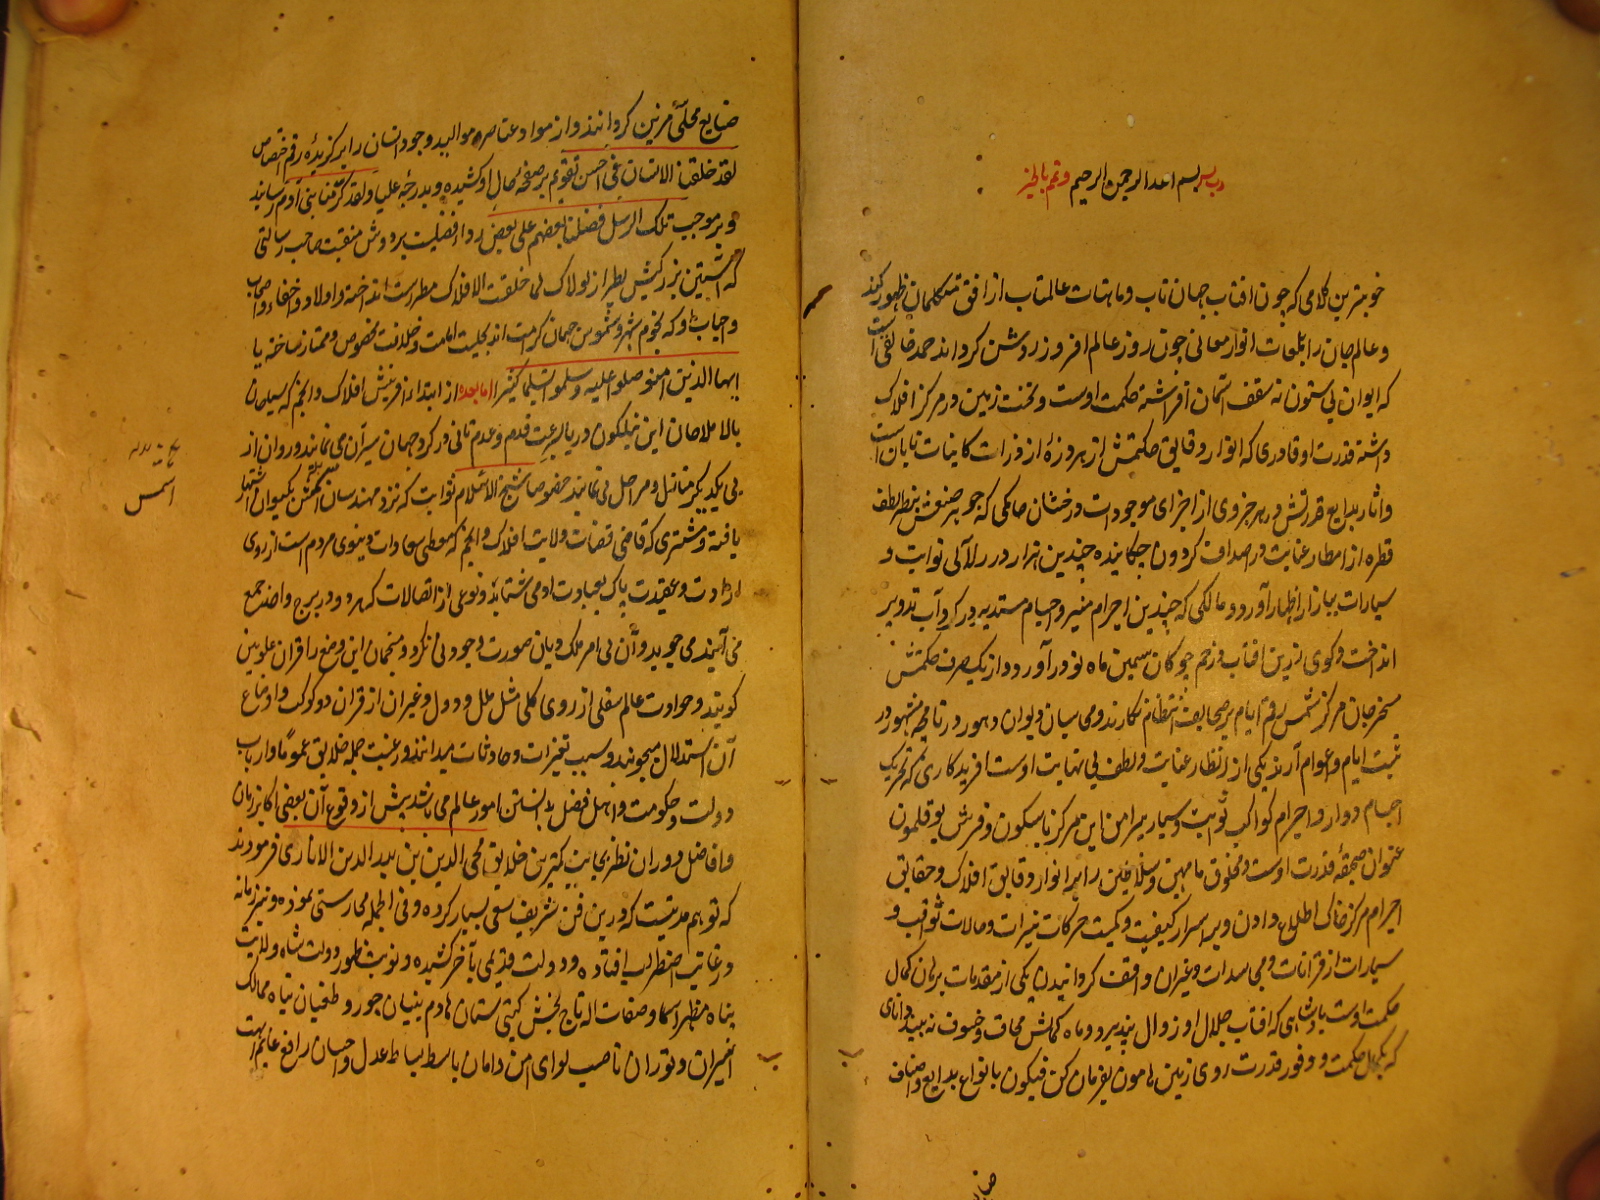 رب یسر بسم الله الرحمن الرحیم وتمم بالخیر
خوبترین کلامی که چون افتاب جهان تاب و ماهتاب عالمتاب از افق متکلمان ظهور کند
و عالم جان را بلمعات انوار معانی چون روز عالم افروز روشن کرداند حمد خالقی است
که ایوان بی ستون نه سقف اسمان افراشته حکمت اوست و تخت زمین در مرکز افلاک
داشته قدرت او قادری که انوار دقایق حکمتش از هر ذرهٔ از ذرات کاینات تابان است
و اثار بدایع قدرتش در هر جزوی از اجزای موجودات درخشان حاکمی که جوهر صنعش بنظر لطف
قطره از امطار عنایت در صداف کردون چکانیده چندین هزار در ر لآلی ثوابت و
سیارات ببازار اظهار آورد و مالکی که چندین اجرام منیر و اجسام مستدیر در کرداب تدویر
انداخت و کوی زرین افتاب و زخم چوکان سیمین ماه نو در آورد و از یک صرف حکمتش
مسخر جان مرکز شمس رقم ایام بر صحایف انتظام نکارند و محاسبان دیوان دهور در تاریخ مشهور در
ثبت ایام و اعوام آرند یکی از انظار عنایت و لطف بی نهایت اوست افریدکاری که تحریک
اجسام دوار و اجرام کواکب ثوابت و سیار پیرامن این مرکز با سکون و فرش بوقلمون
عنوان صحیفهٔ قدرت اوست و مخلوق ما مهین و سلالهٔ طین را بر انوار دقایق افلاک و حقایق
اجرام مرکز خاکی اطلاع دادن و بر اسرار کیفیت و کمیت حرکات نیرات و حالات ثواقب و
سیارات از قرانات و ممر سدات و غیران واقف کردانیدن یکی از مقدمات برهان کمال
حکمت اوست پادشاهی که افتاب جلال او زوال نپذیرد و ماه کمالش محاق و خسوف نه بیند دانای
که بکمال حکمت و وفور قدرت روی زمین هامون بفرمان کن فیکون بانواع بدایع و اصناف
صنا
صنایع محلّیٰ و مزین کردانند و از مواد عناصر و موالید وجود انسان را برکزیده رقم اختصاص
لقد خلقنا الانسان فی احسن تقویم بر صفحه حال او کشیده و بدرجهٔ علیا و لقد کرّمنا بنی آدم رسانید
و بر موجب تلک الرسل فضلنا بعضهم علی بعض رداء افضلیت بر دوش منقبت صاحب رسالتی
که آستین بزرکیش بطراز لولاک لما خلقت الافلاک مطرز است انداخته و اولاد و خلفاء و اصحاب
و احباب او که نجوم سپهر و شموس جهان کرامت اند بحلیت امامت و خلافت مخصوص و ممتاز ساخته یا
ایها الذین امنو صلوا علیه و سلموا تسلیما کثیرا اما بعد از ابتداء افرینش افلاک و انجم که سیاحان
بالا ملاحان این نیلکون دریا بسرعت قدم و عدم تانی در کرد جهان سیران می نمایند و روان از
پی یکدیکر منازل و مراحل می نمایند خصوصا شیخ الاسلام ثوابت که نزد مهندسان انجمن بکیوان اشتهار
یافته و مشتری که قاضی قضات ولایت افلاک و انجم که معطی سعادات دینوی مردم است از روی
ارادت و عقیدت پاک بعبادت او می شتابد و نوعی از اتصالات که هر دو در برج واحد جمع
می آیند می جوید و آن بی امر ملک دیان صورت وجود نمی کیرد و منجمان این وضع را قران علویین
کویند و حوادث عالم سفلی از روی کلی مثل ملل و دول و غیران از قران دو کوکب و اوضاع
آن استدلال میجویند و سبب تغیرات و حادثات میدانند و رغبت جمله خلایق عموماً و ارباب
دولت و حکومت و اهل فضل بدانستن امور عالم می باشد پیش از وقوع آن بعضی اکابر زمان
و افاضل دوران نظر بجانب کمترین خلایق محی الدین بن بدر الدین الاناری فرمودند
که تو هم مدتیست که در ین فن شریف سعی بسیار کرده و فی الجمله مهارستی نموده و نیز زمانه
در غایت اضطراب افتاده و دولت قدیمی بآخر کشیده و نوبت ظهور دولت شاه ولایت
پناه مظهر اسماء و صفات اله تاج بخش کیتی ستان هادم بنیان جور و طغیان پناه ممالک
ایران و توران ناصب لوای امن و امان باسط بساط عدل و احسان رافع عالم